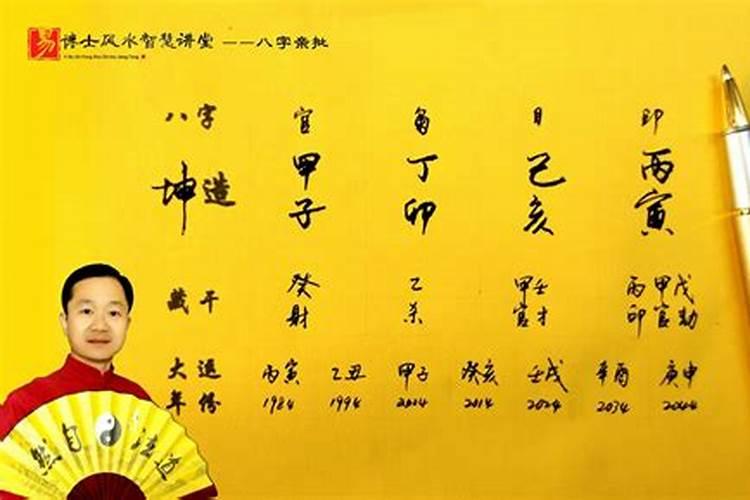 易 博士风水智慧讲堂 ——八字亲批
八字 官 日 印
坤造 甲 丁 己 丙
子 卯 亥 寅
藏干 癸 乙 甲壬 丙甲戊
财 杀 官才 印官劫
大运 丙寅 乙丑 甲子 癸亥 壬戌 辛酉 庚申
年份 1984 1994 2004 2014 2024 2034 2044
然自法道